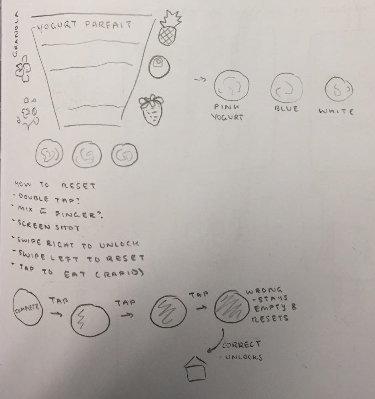 YOGURT PARFAIT
GRANOLA
PINK YOGURT
BLUE
WHITE
HOW TO RESET
- DOUBLE TAP?
- MIX FINGER?
- SCREEN SHOT
- SWIPE RIGHT TO UNLOCK
- SWIPE LEFT TO RESET
- TAP TO EAT (RAPID)
COMPLETE
TAP
TAP
TAP
WRONG
- STAYS
EMPTY &
RESETS
CORRECT
- UNLOCKS